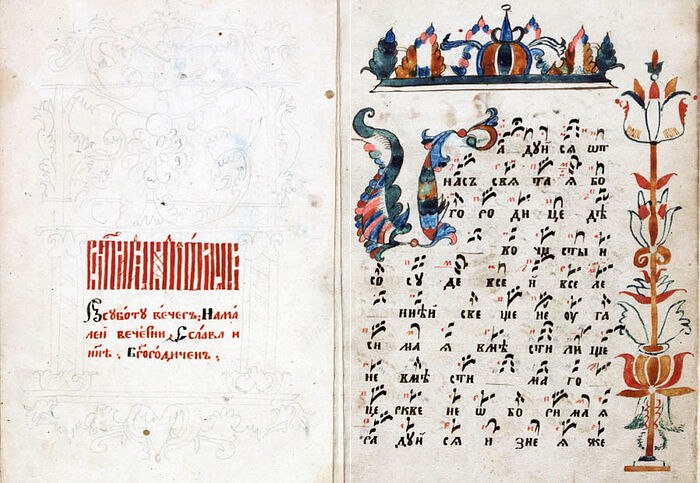 Всуботꙋ вечеръ: Нама
леи вечерни, Еславл и
нн҃ѣ. Бг҃ородиченъ.
Ра дуй сѧ ѿ
насъ свѧ та ѧ бо
го ро ди це дѣ
во чи сты и
со су де все й все ле
ннѣй све ще не оу га
си ма ѧ вмѣ сти ли ще
не вмѣ сти ма го
це ркве не ѡ бо ри ма ѧ
ра дуй сѧ и з не ѧ же